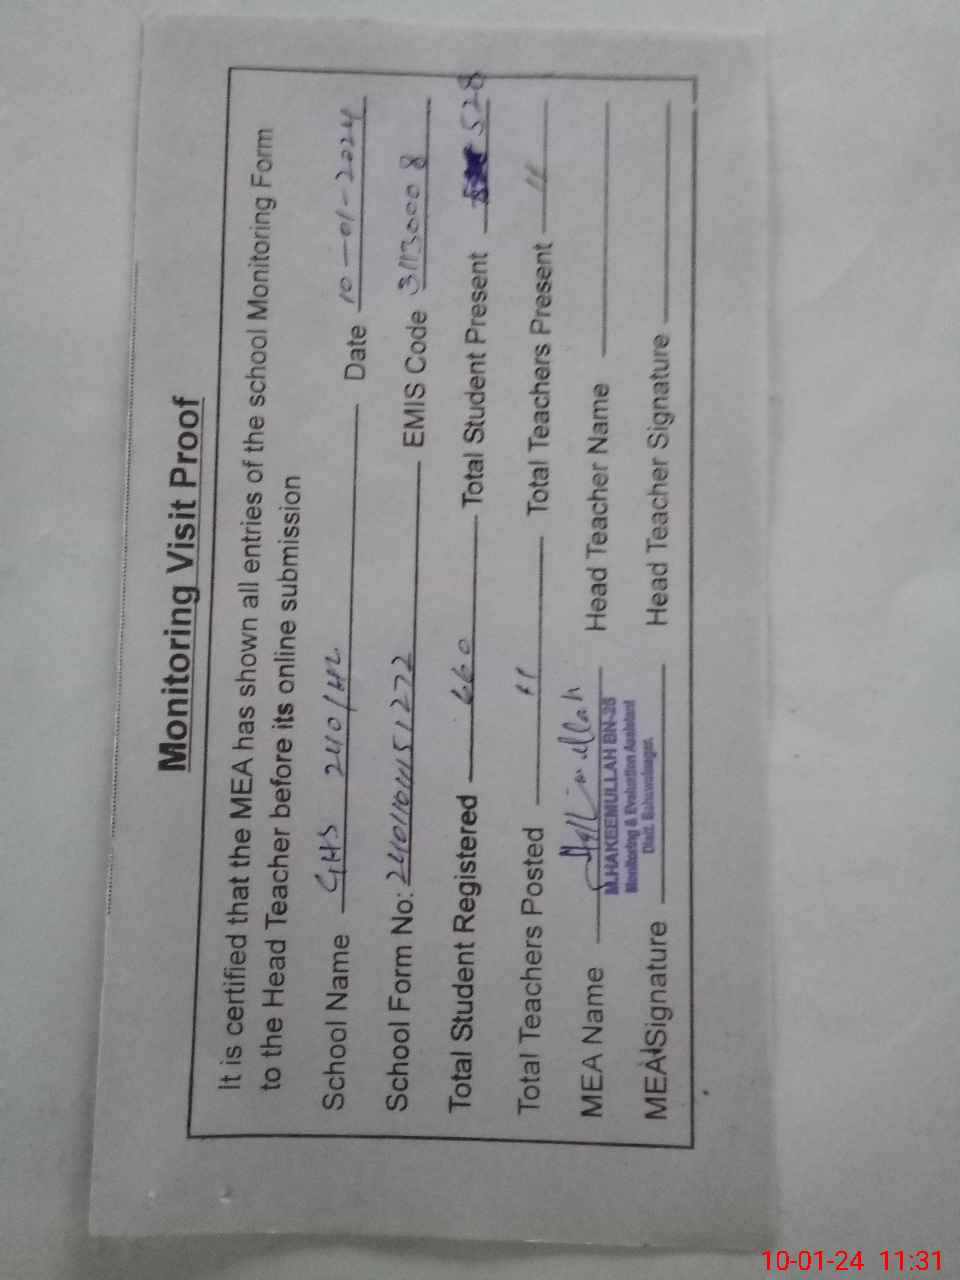 Monitoring Visit Proof
It is certified that the MEA has shown all entries of the school Monitoring Form
to the Head Teacher before its online submission
School Name GHS 240/HL Date 10-01-2024
School Form No: EMIS Code 31130008
Total Student Registered 660 Total Student Present 528
Total Teachers Posted 11 Total Teachers Present 11
MEA Name Head Teacher Name
M.HAKEEMULLAH BN-26
Monitoring & Evaluation Assistant
Distt. Bahawalnagar.
MEA Signature Head Teacher Signature
10-01-24 11:31